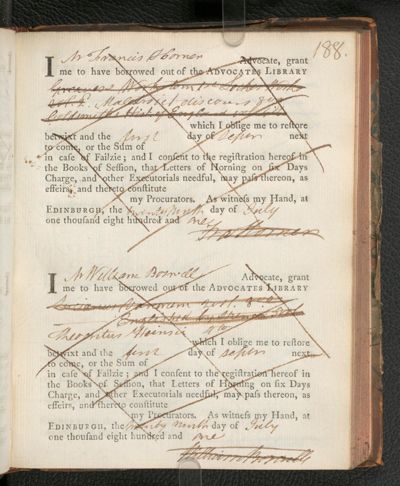 188.
I Mr Francis Horner Advocate, grant
me to have borrowed out of the ADVOCATES LIBRARY
which I oblige me to restore
betwixt and the first day of Sepr next
to come, or the Sum of
in case of Failzie; and I consent to the registration hereof in
the Books of Session, that Letters of Horning on six Days
Charge, and other Executorials needful, may pass thereon, as
effeirs, and thereto constitute
my Procurators. As witness my Hand, at
EDINBURGH, the day of July
one thousand eight hundred and one
Fra Horner
I Mr William Boswell Advocate, grant
me to have borrowed out of the ADVOCATES LIBRARY
Theophilus 4to
which I oblige me to restore
betwixt and the first day of Sepr next
to come, or the Sum of
in case of Failzie; and I consent to the registration hereof in
the Books of Session, that Letters of Horning on six Days
Charge, and other Executorials needful, may pass thereon, as
effeirs, and thereto constitute
my Procurators. As witness my Hand, at
EDINBURGH, the twenty ninth day of July
one thousand eight hundred and one
William Boswell